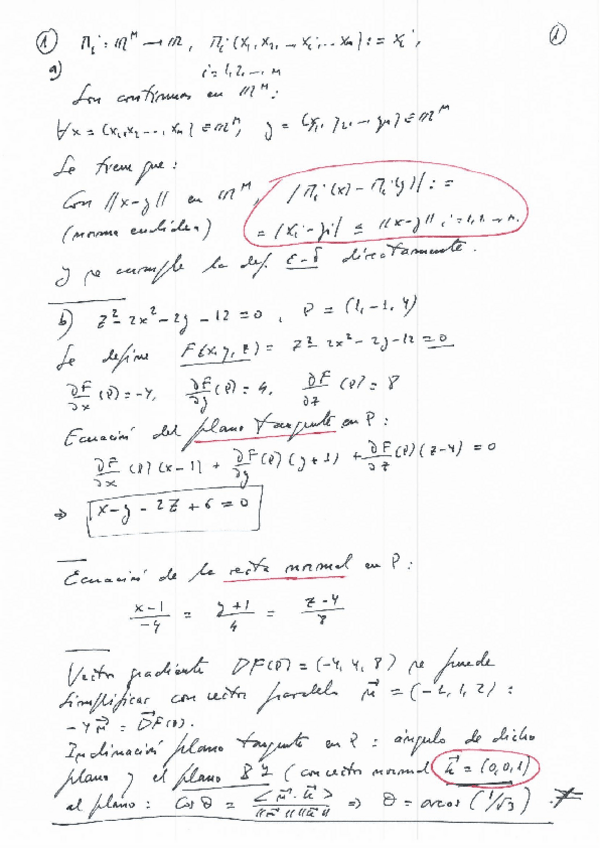 ① Πi: ℝᴹ → ℝ, Πi(x1, x2, ... xi, ... xm) := xi, ①
a) i = 1, 2, ... m
Son continuas en ℝᴹ:
∀x = (x1, x2, ..., xn) ∈ ℝᴹ, y = (y1, y2, ... yn) ∈ ℝᴹ
Se tiene que:
Con ||x-y|| en ℝᴹ, |Πi(x) - Πi(y)| :=
(norma euclídea) = |xi - yi| ≤ ||x-y||, i = 1, 2, ... m.
y se cumple la def. ε-δ directamente.
b) z² - 2x² - 2y - 12 = 0, P = (1, -1, 4)
Se define F(x, y, z) = z² - 2x² - 2y - 12 = 0
∂F/∂x (P) = -4, ∂F/∂y (P) = 4, ∂F/∂z (P) = 8
Ecuación del plano tangente en P:
∂F/∂x (P)(x-1) + ∂F/∂y (P)(y+1) + ∂F/∂z (P)(z-4) = 0
⇒ x - y - 2z + 6 = 0
Ecuación de la recta normal en P:
x-1/-4 = y+1/4 = z-4/8
Vector gradiente DF(P) = (-4, 4, 8) se puede
simplificar con vector paralelo = (-1, 1, 2):
Inclinación plano tangente en P: ángulo de dicho
plano y el plano (con vector normal = (0, 0, 1)
al plano: Cos θ = ⇒ θ = arcos (1/√3).